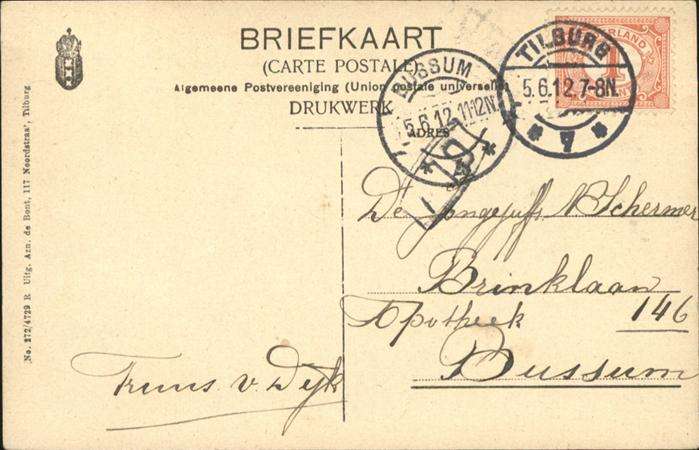 BRIEFKAART
(CARTE POSTALE)
Algemeene Postvereeniging (Union postale universelle)
DRUKWERK
ADRES
BUSSUM
5.6.12 11-12N.
TILBURG
5.6.12 7-8N.
7
No. 272/4729 R Uitg. Arn. de Bont, 117 Noordstraat, Tilburg
De Jongejuffr N Schermer
Brinklaan
Apotheek 146
Bussum
Truus v. Dijk